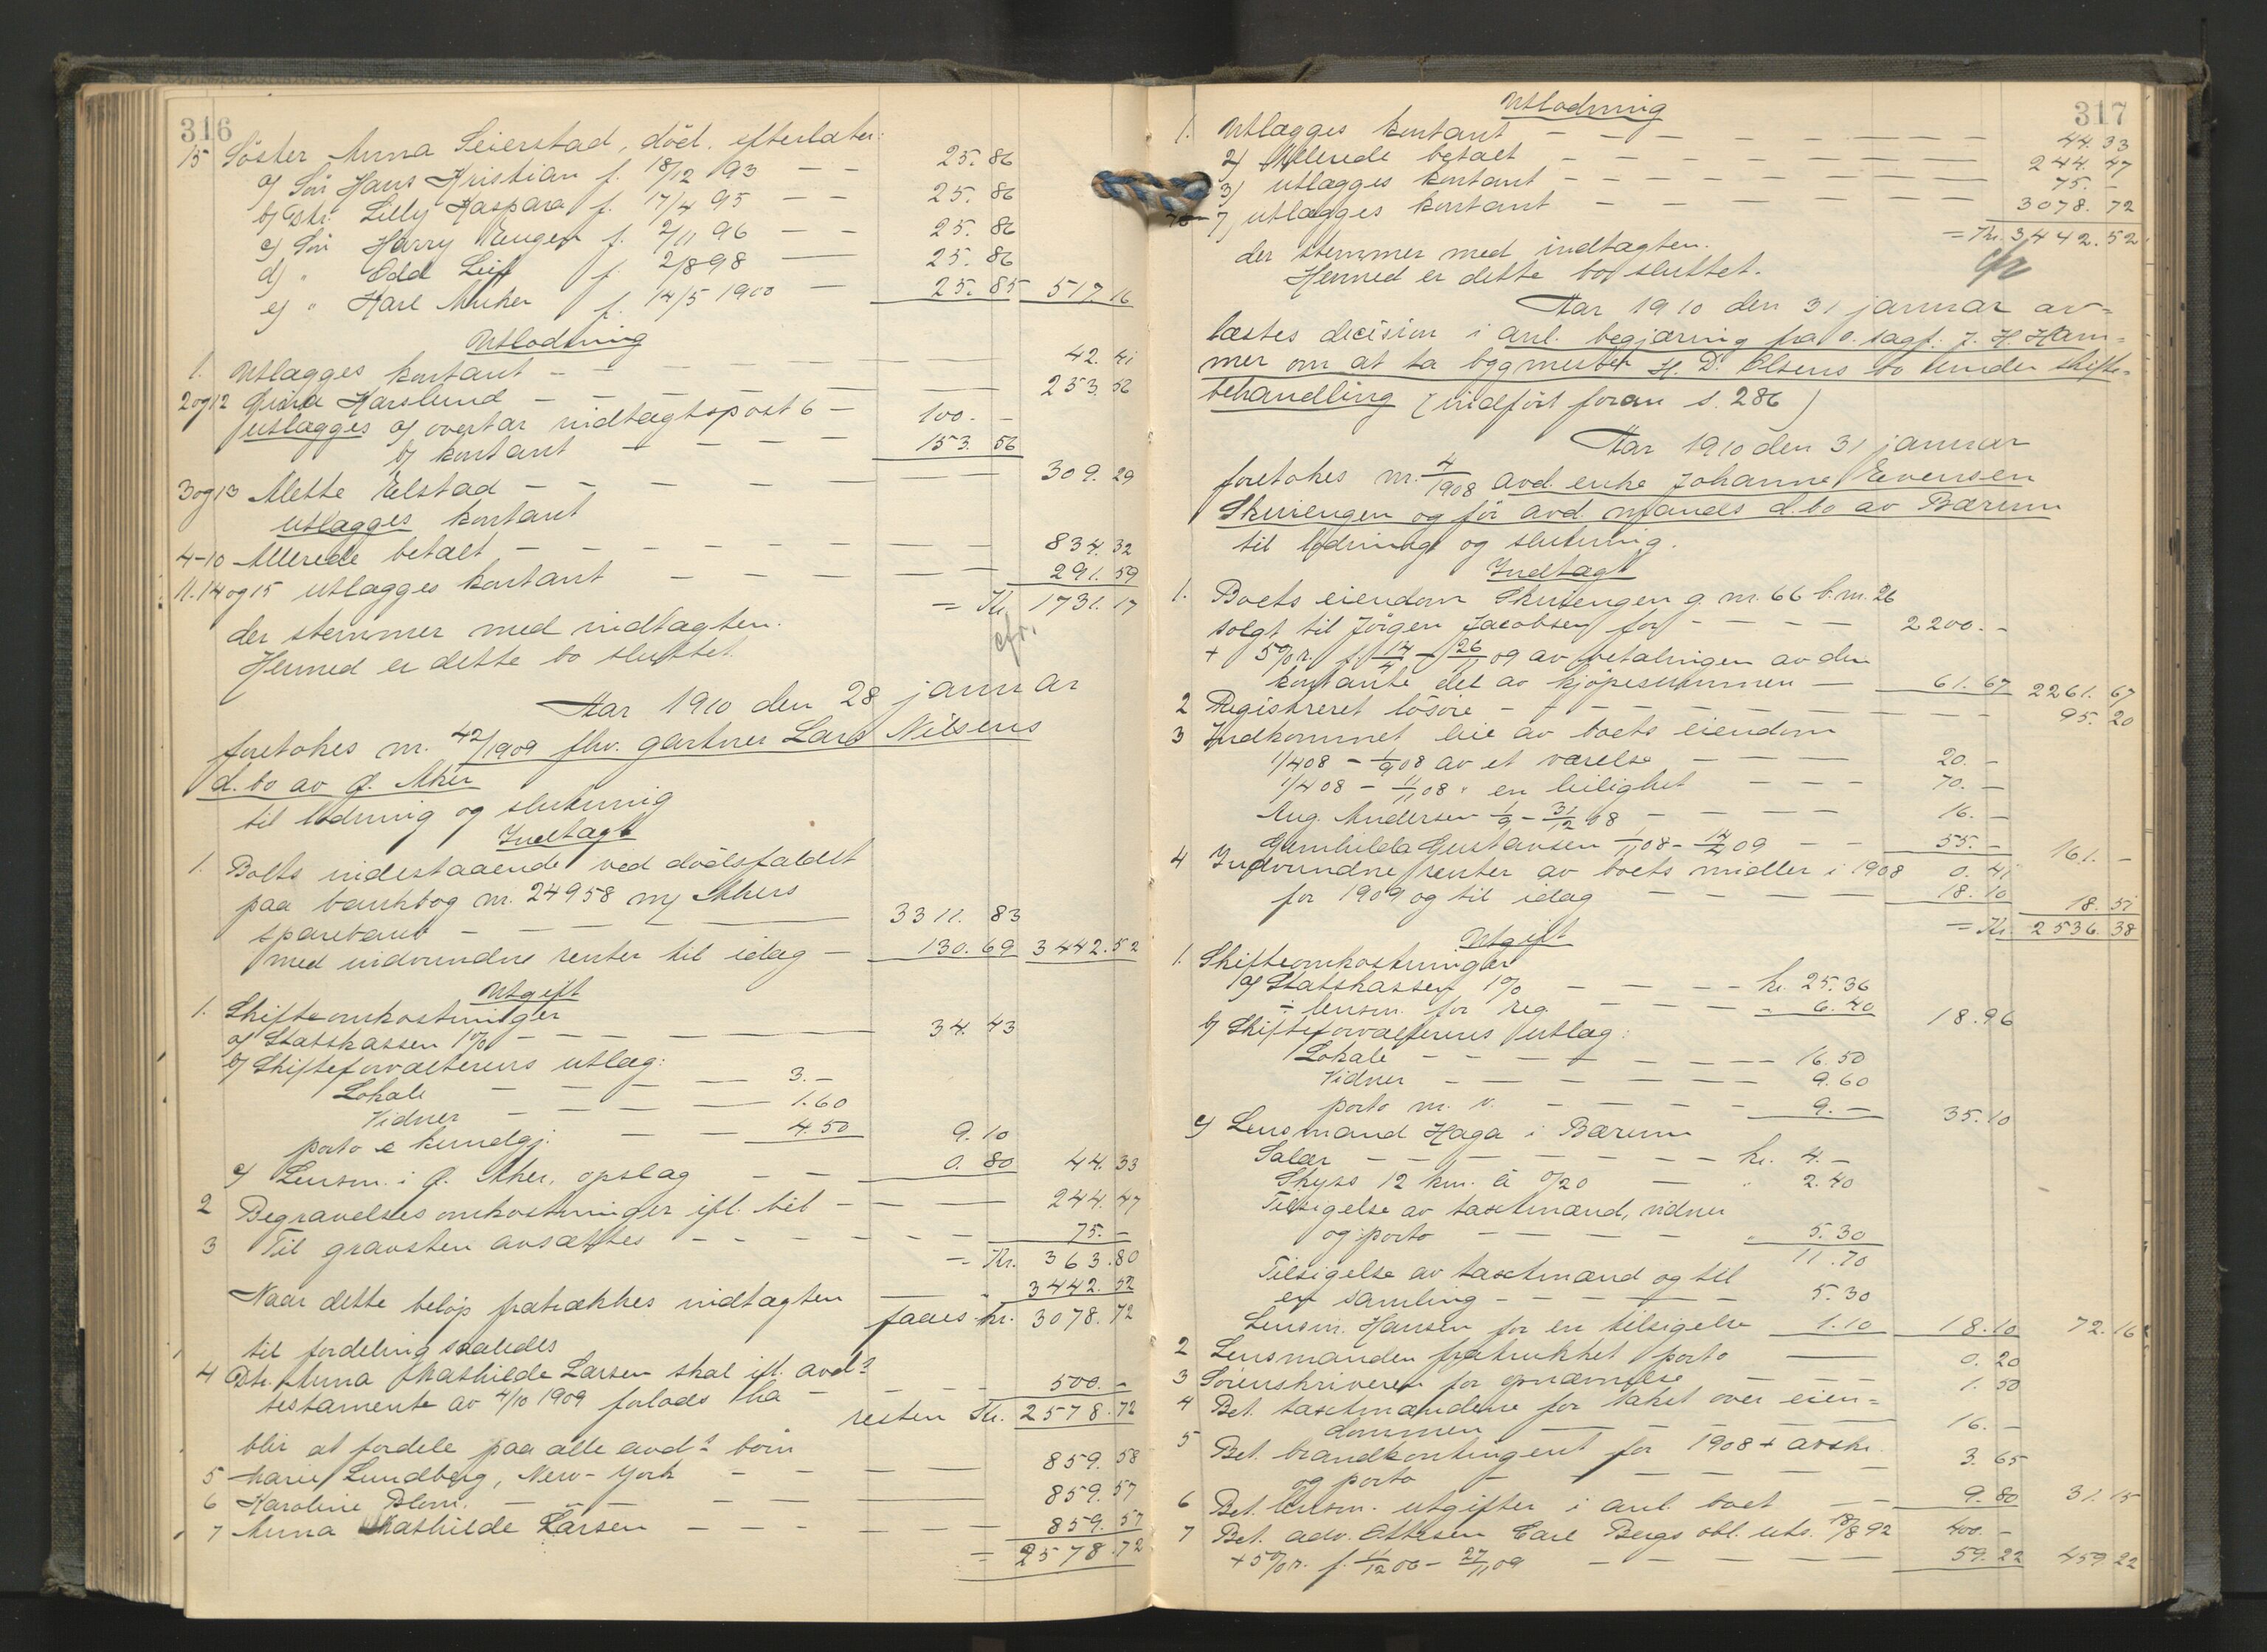 316
15 Söster Anna Seierstad, död, efterlater:
a) Sön Hans Kristian f. 18/12 93 — — 25. 86
b) Dtr. Lilly Kaspara f. 17/4 95 — — 25. 86
c) Sön Harry Eugen f. 2/11 96 — — 25. 86
d) " Odd Leif f. 2/8 98 — 25. 86
e) " Karl Anker f. 14/5 1900 — 25. 85 517. 16
Utlodning
1. Utlægges kontant — — — — 42. 41
2 og 12 Gina Karslund — — — — 253. 56
utlægges a) overtar indtægtspost 6 — 100. -
b) kontant — — — 153. 56
3 og 13 Mette Elstad — — — — 309. 29
utlægges kontant
4-10 Allerede betalt — — — — 834. 32
11. 14 og 15 utlægges kontant — — — — 291. 59
= Kr. 1731. 17
der stemmer med indtægten.
Hermed er dette bo sluttet.
Aar 1910 den 28 januar
foretokes nr. 42/1909 fhv. gartner Lars Nilsens
d. bo av Ø. Aker
til lodning og slutning
Indtægt
1. Boets indestaaende ved dödsfaldet
paa bankbog nr. 24958 m/ Akers
sparebank — — — 3311. 83
med indvundne renter til idag — 130. 69 3442. 52
Utgift
1. Skifteomkostninger
a) Statskassen 1% — — — 34. 43
b) Skifteforvalterens utlæg:
Lokale — — — 3. -
Vidner — — — 1. 60
porto & kundgj. — — 4. 50 9. 10
c) Lensm. i Ø. Aker, opslag — — 0. 80 44. 33
2 Begravelsesomkostninger ifl. bil — — — 244. 47
3 Til gravsten avsættes — — — — 75. -
= Kr. 363. 80
Naar dette belöp fratrækkes indtægten — " 3442. 52
faaes kr. 3078. 72
til fordeling saaledes
4 Dtr. Anna Mathilde Larsen skal ifl. avds
testamente av 4/10 1909 forlods ha — — — 500. -
resten Kr. 2578. 72
blir at fordele paa alle avds börn
5 Marie Lundberg, New-York — — — 859. 58
6 Karoline Blom. — — — 859. 57
7 Anna Mathilde Larsen — — — 859. 57
= 2578. 72
317
Utlodning
1. Utlægges kontant — — — — 44. 33
2) Allerede betalt — — — — 244. 47
3) utlægges kontant — — — — 75. -
7, utlægges kontant — — — — 3078. 72
= Kr. 3442. 52
der stemmer med indtægten.
Hermed er dette bo sluttet.
Aar 1910 den 31 januar av=
læstes decision i anl. begjæring fra o. sagf. J. H. Ham=
mer om at ta bygmester H. D. Olsens bo under skifte=
behandling (indfört foran s. 286)
Aar 1910 den 31 januar
foretokes nr. 4/1908 avd. enke Johanne Evensen
Skuiengen og för avd. mands d.bo av Bærum
til lodning og slutning.
Indtægt
1. Boets eiendom Skuiengen g. nr. 66 b. nr. 26
solgt til Jörgen Jacobsen for — — — 2200. -
+ 5% r. f. 14/4 - 26/11 09 av betalingen av den
kontante del av kjöpesummen — 61. 67 2261. 67
2 Registreret lösöre — — — — 95. 20
3 Indkommet leie av boets eiendom
1/4 08 - 1/9 08 av et værelse — — — 20. -
1/4 08 - 11/11 08 " en leilighet — — 70. -
Aug. Andersen 1/9 - 31/12 08 — — — 16. -
Gunhilda Gustavsen 1/11 08 - 14/4 09 — — 55. - 161. -
4 Indvundne renter av boets midler i 1908 0. 41
for 1909 og til idag — — — 18. 10 18. 51
= Kr. 2536. 38
Utgift
1. Skifteomkostninger
a) Statskassen 1% — — — kr. 25. 36
÷ lensm. for reg. — — — " 6. 40 18. 96
b) Skifteforvalterens utlæg:
Lokale — — — — 16. 50
Vidner — — — — 9. 60
porto m. v. — — — 9. - 35. 10
c) Lensmand Haga i Bærum
Salær — — — — kr. 4. -
Skyss 12 km. à 0/20 — " 2. 40
Tilsigelse av takstmænd, vidner
og porto — — — " 5. 30
11. 70
Tilsigelse av takstmænd og til
en samling — — — 5. 30
Lensm. Hansen for en tilsigelse 1. 10 18. 10 72. 16
2 Lensmanden fratrukket porto — 0. 20
3 Sorenskriveren for opnævnelse — — 1. 50
4 Bet. takstmændene for takst over eien=
dommen — — — 16. -
5 Bet. brandkontingent for 1908 + avskr.
og porto — — — 3. 65
6 Bet. lensm. utgifter i anl. boet — — 9. 80 31. 15
7 Bet. adv. Ottesen Carl Bergs obl. uts. 18/8 92 400. -
+ 5% r. f. 11/12 06 - 27/11 09 — — — 59. 22 459. 22